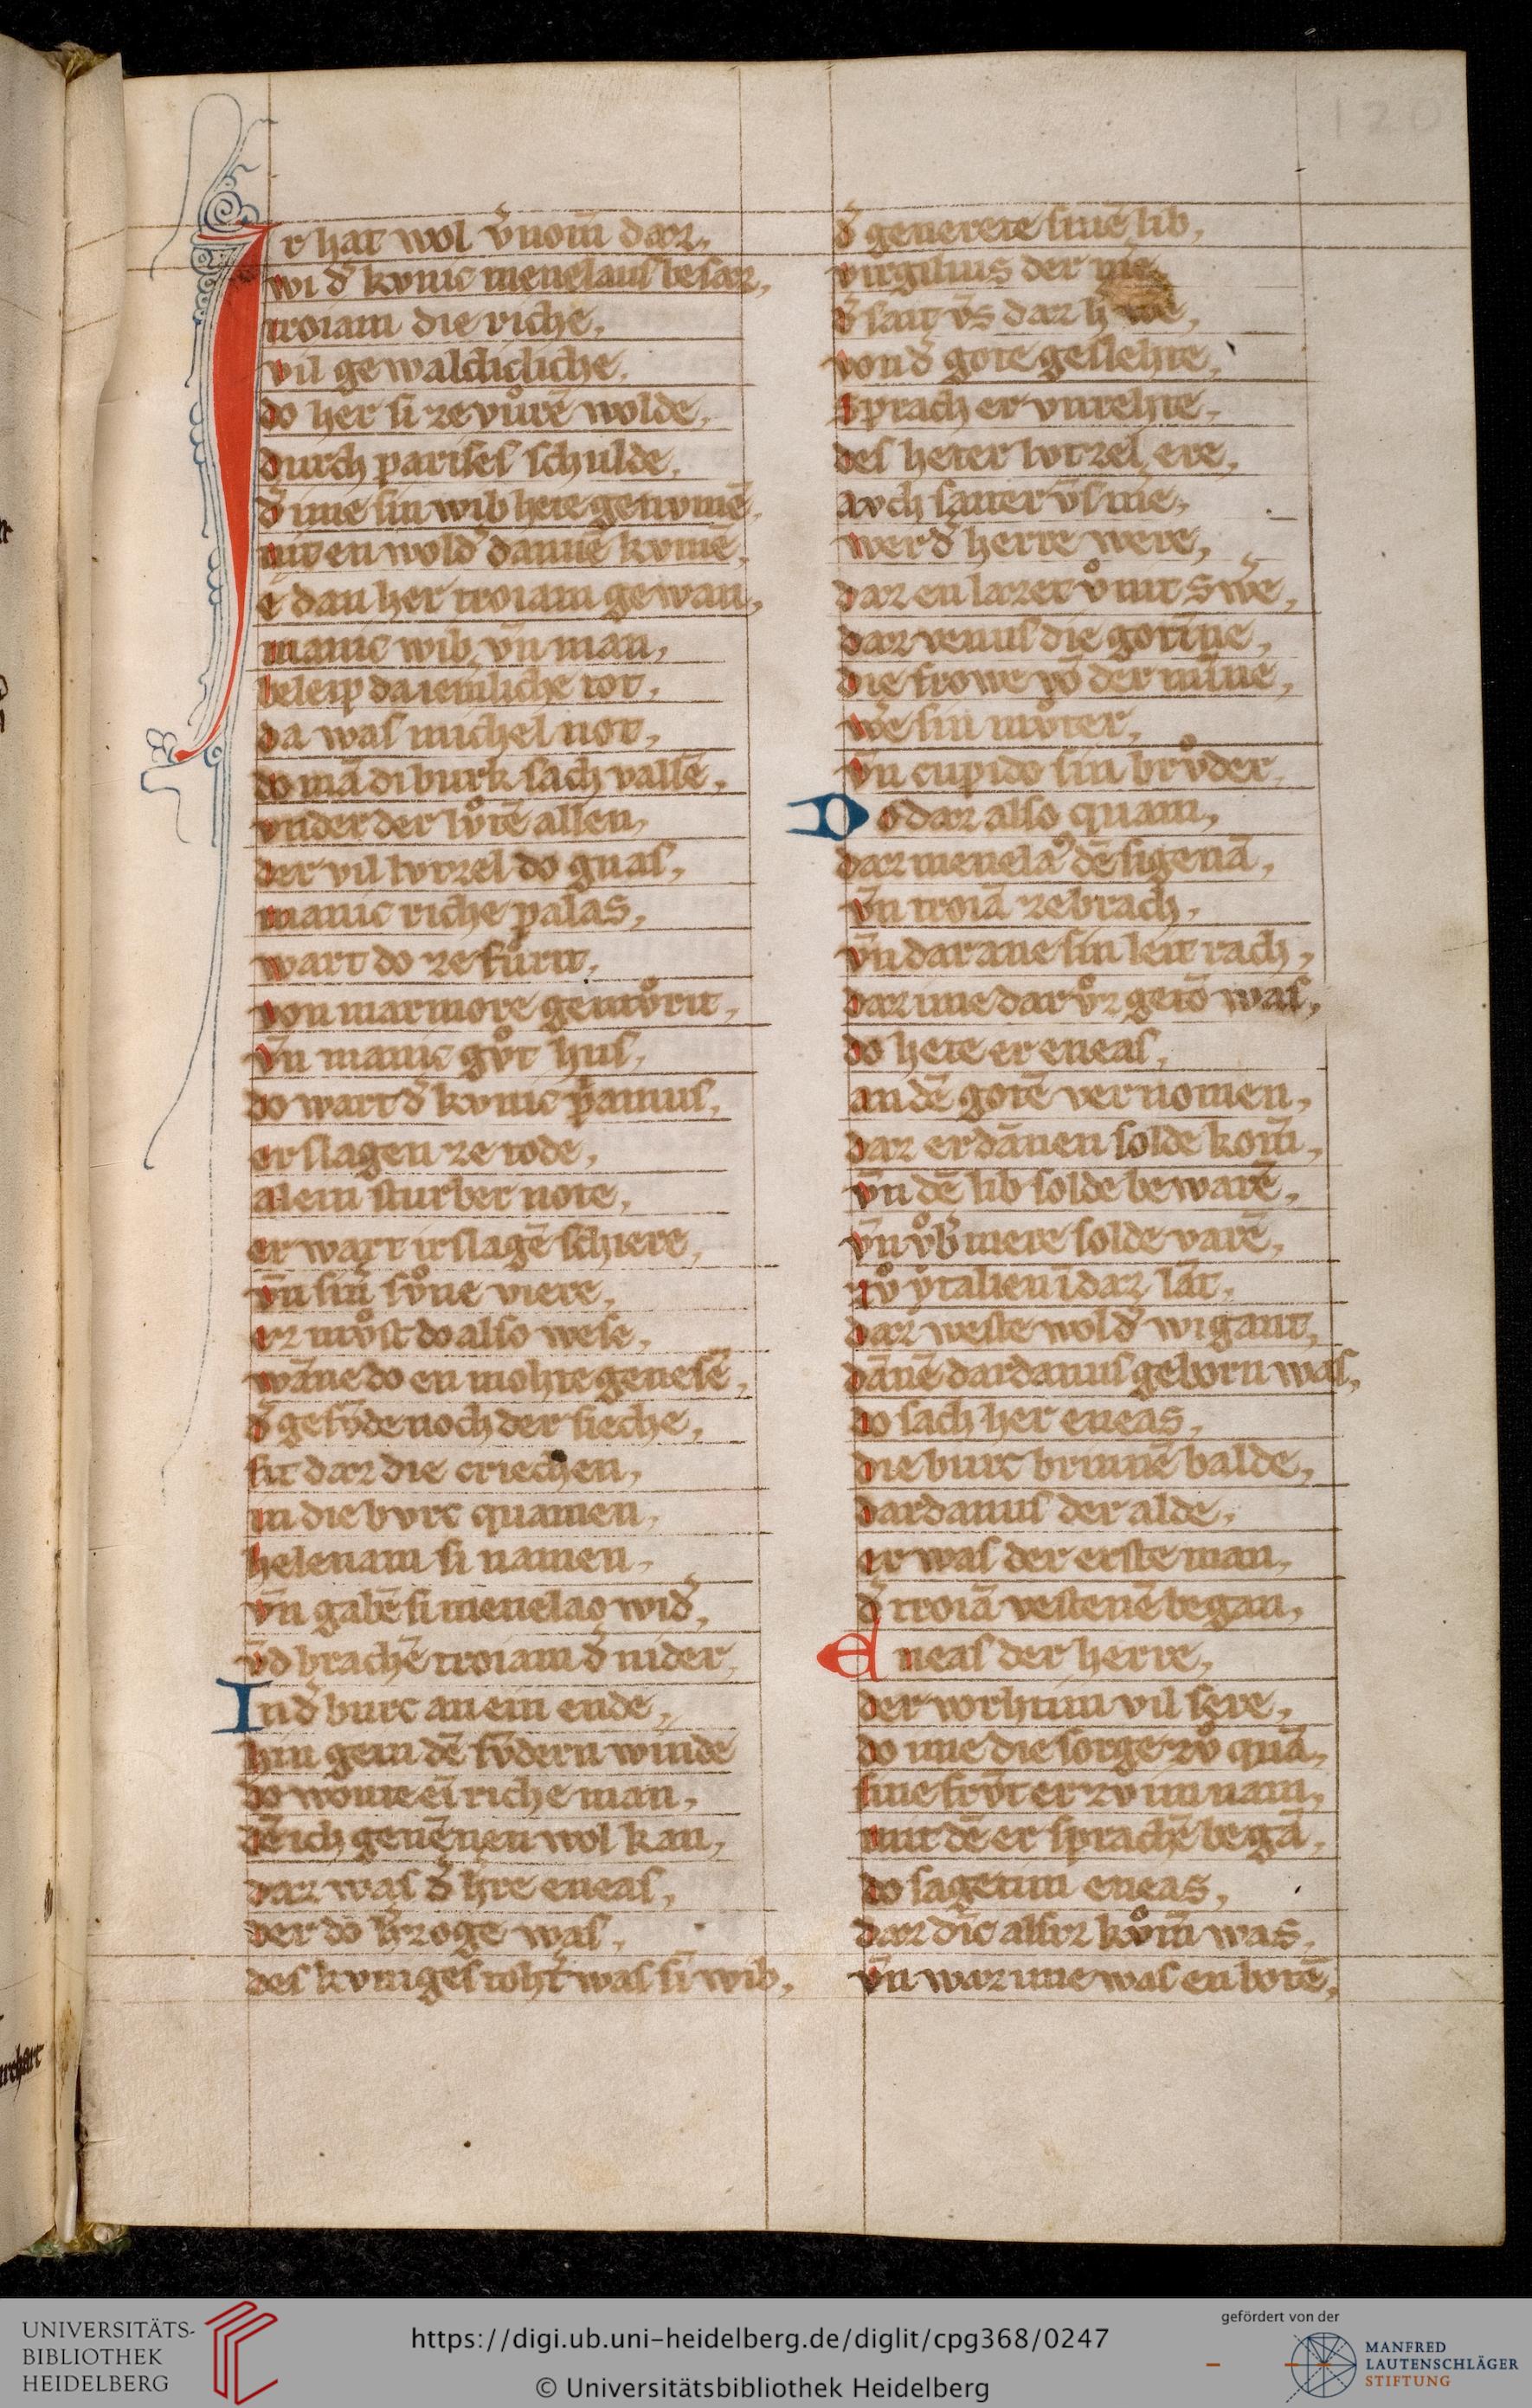 Ir hat wol v̄nom̄ daz,
wi d̄ kvnic menelaus besaz,
troiam die riche,
vil gewaldicliche.
do her si zevůrē wolde,
durch parises schulde,
d̄ ime sin wib hete genvmē,
niten wold̄ dannē kvmē,
e dan her troiam gewan,
manic wib vn̄ man,
beleip da iemliche tot,
da was michel not,
do mā di burk sach vallē,
vnder der lv̊tē allen,
der vil lvtzel do gnas,
manic riche palas,
wart do zefůrit,
von marmore gemv̊rit,
vn̄ manic gv̊t hus,
do wart d̄ kvnic p̄amus,
erslagen ze tode,
alein sturber note,
er wart irslagē schiere,
vn̄ sin̄ sv̊ne viere,
ez mv̊st do also wesē,
wāne do en mohte genesē,
d̄ gesv̄de noch der sieche,
sit daz die criechen,
in die bvrc quamen,
helenam si namen,
vn̄ gabē si menelao wid̄,
vn̄d brachē troiam d̄ nider,
In d̄ burc an ein ende,
hin gein dē sv̄dern winde
do wonte eī riche man,
dē ich genēnen wol kan,
daz was d̄ h̄re eneas,
der do h̄zoge was,
des kvniges toht̄ was sī wib,
d̄ generete sinē lib,
virgilius der me
d̄ sait v̄s daz h we,
von d̄ gote geslehte,
sprach er vnrehte,
des heter lvtzel ere,
avch saiter v̄s me,
wer d̄ herre were,
daz en lazet v̊ nit swē,
daz venus die gotinne,
die frowe vō der minne,
we sin mv̊ter,
vn̄ cupido sin brv̊der,
Do daz also quam,
daz menela⁹ dē sigenā,
vn̄ troiā zebrach,
vn̄ dar ane sin leit rach,
daz ime dar v̊z getō was,
do hete er eneas,
an dē gotē vernomen,
daz er dānen solde kom̄,
vn̄ dē lib solde bewarē,
vn̄ v̊b̄ mere solde varē,
zv̊ ytalien ī daz lāt,
daz weste wol d̄ wigant,
dānē dardanus geborn was,
do sach her eneas,
die burc brinnē balde,
dardanus der alde,
er was der erste man,
d̄ troiā vestenē began,
Eneas der herre,
der vorhtim vil sere,
do ime die sorge zv̊ quā,
sine frv̄t er zv im nam,
mit dē er sprachē begā,
do sagetim eneas,
daz dīc alsvz kv̊m̄ was,
vn̄ waz ime was en botē,
120
UNIVERSITÄTS-
BIBLIOTHEK
HEIDELBERG
https://digi.ub.uni-heidelberg.de/diglit/cpg368/0247
© Universitätsbibliothek Heidelberg
gefördert von der
MANFRED
LAUTENSCHLÄGER
STIFTUNG